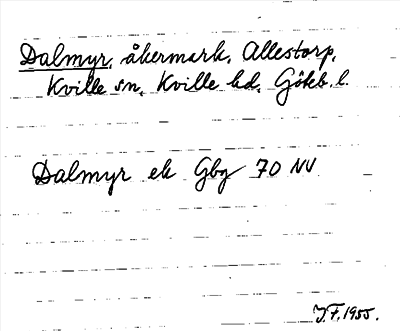 Dalmyr, åkermark, Allestorp,
Kville sn, Kville hd, Göteb. l.
Dalmyr ek Gbg 70 NV
J.F. 1955.